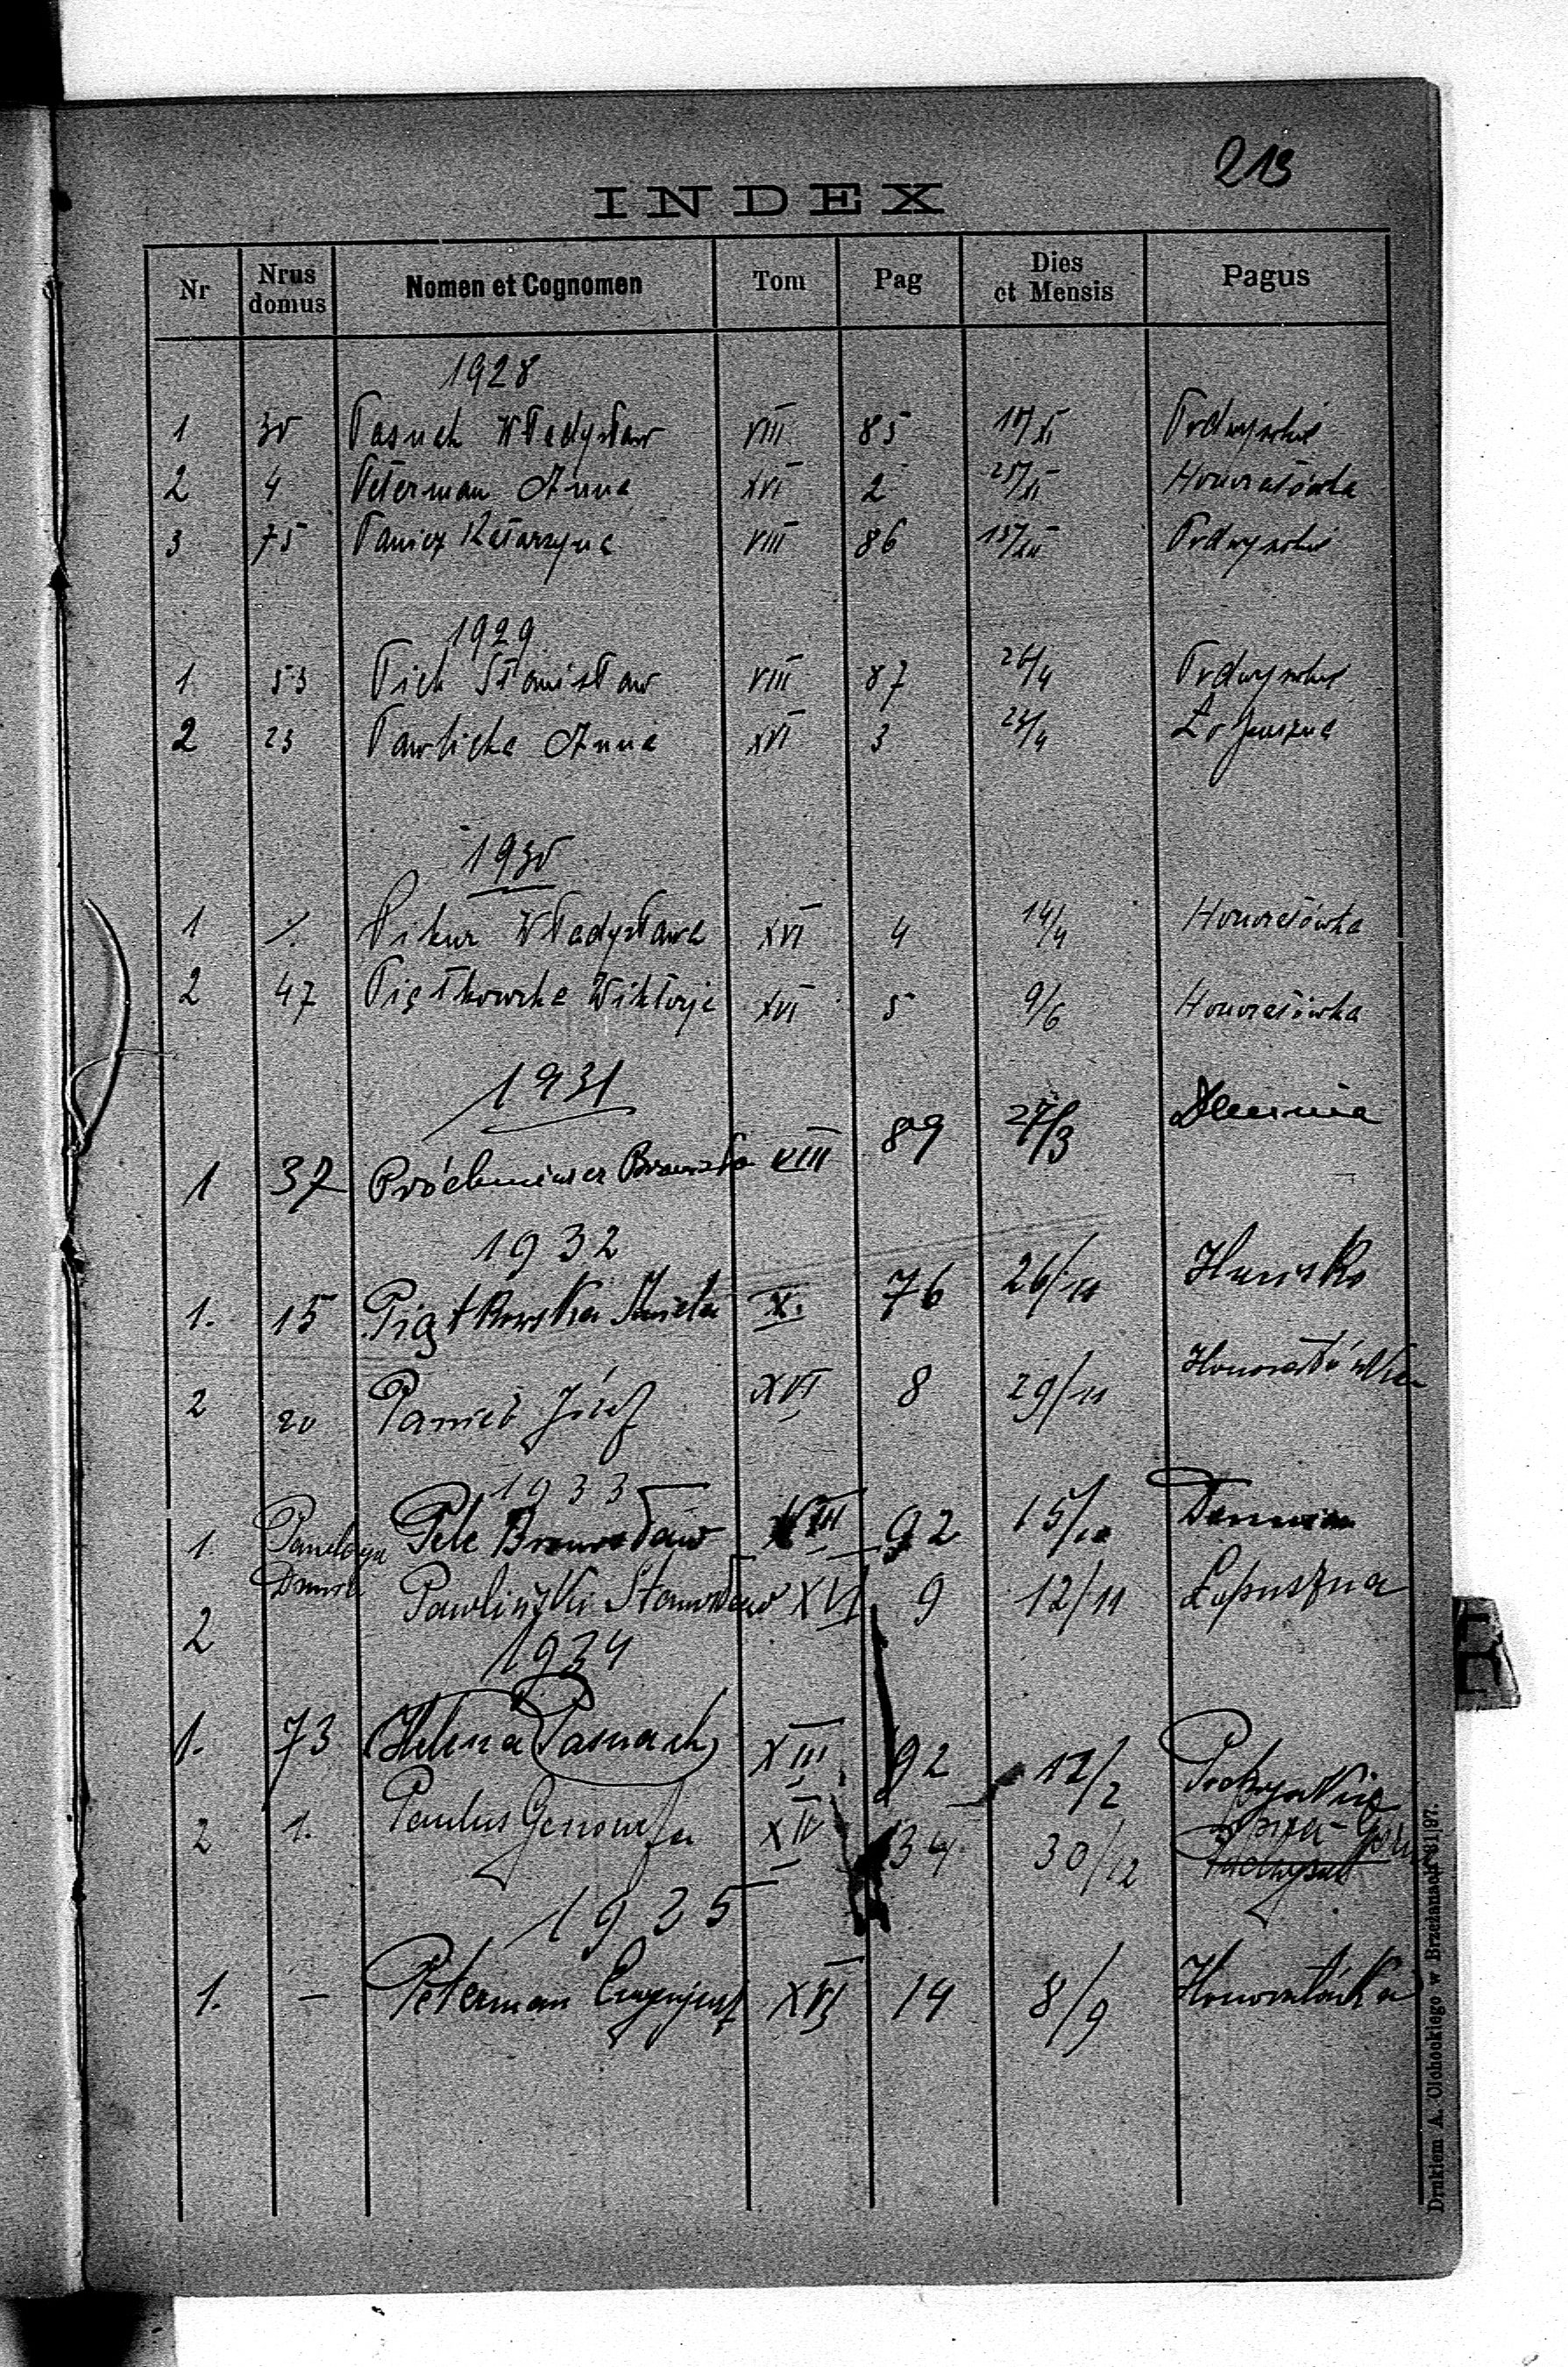 213
INDEX
Nr Nrus domus Nomen et Cognomen Tom Pag Dies et Mensis Pagus
1928
1 30 Pasnak Władysław VIII 85 Podwysokie
2 4 Peterman Anna XVI 2 Honoratówka
3 75 Panicz Katarzyna VIII 86 Podwysokie
1929
1 53 Pich Stanisław VIII 87 26/4 Podwysokie
2 23 Pawlicka Anna XVI 3 Łopuszna
1930
1 Pikur Władysława XVI 4 14/4 Honoratówka
2 47 Piątkowska Wiktorja XVI 5 9/6 Honoratówka
1931
1 37 VIII 89 27/3
1932
1. 15 Piątkowska Aniela X. 76 26/11 Hucisko
2 20 Panicz Józef XVI 8 29/11 Honoratówka
1933
1. Pele Bronisław VIII 92 15/10
2 Pawliński Stanisław XVI 9 12/11 Łopuszna
1934
1. 73 Helena Pasnach XIII 92 12/2 Podwysokie
2 1. Paulus Genowefa XIV 34 30/12
1935
1. — Peterman Eugenjusz XVI 14 8/9 Honoratówka
Drukiem A. Olchockiego w Brzeżanach 81|97.